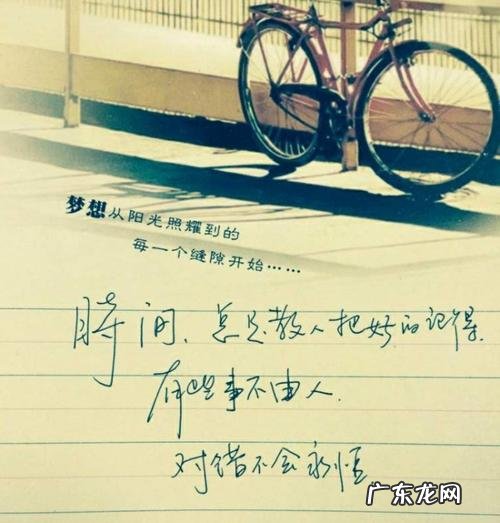 梦想从阳光照耀到的
每一个缝隙开始……
時间,总是教人把好的记得.
有些事不由人.
对错不会永恒
广东龙网